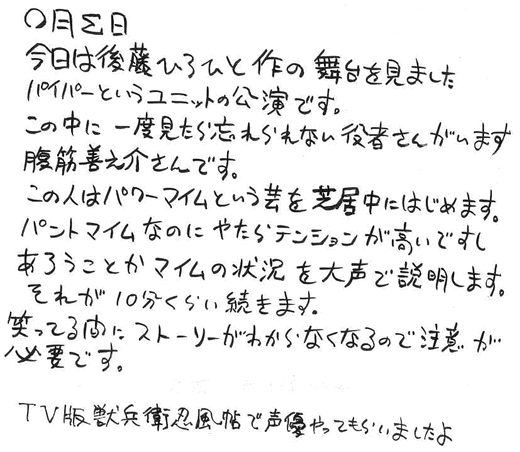 ○月Σ日
今日は後藤ひろひと作の舞台を見ました
パイパーというユニットの公演です。
この中に一度見たら忘れられない役者さんがいます
腹筋善之介さんです。
この人はパワーマイムという芸を芝居中にはじめます。
パントマイムなのにやたらテンションが高いですし
あろうことかマイムの状況を大声で説明します。
それが10分くらい続きます。
笑ってる間にストーリーがわからなくなるので注意が
必要です。
TV版獣兵衛忍風帖で声優やってもらいましたよ